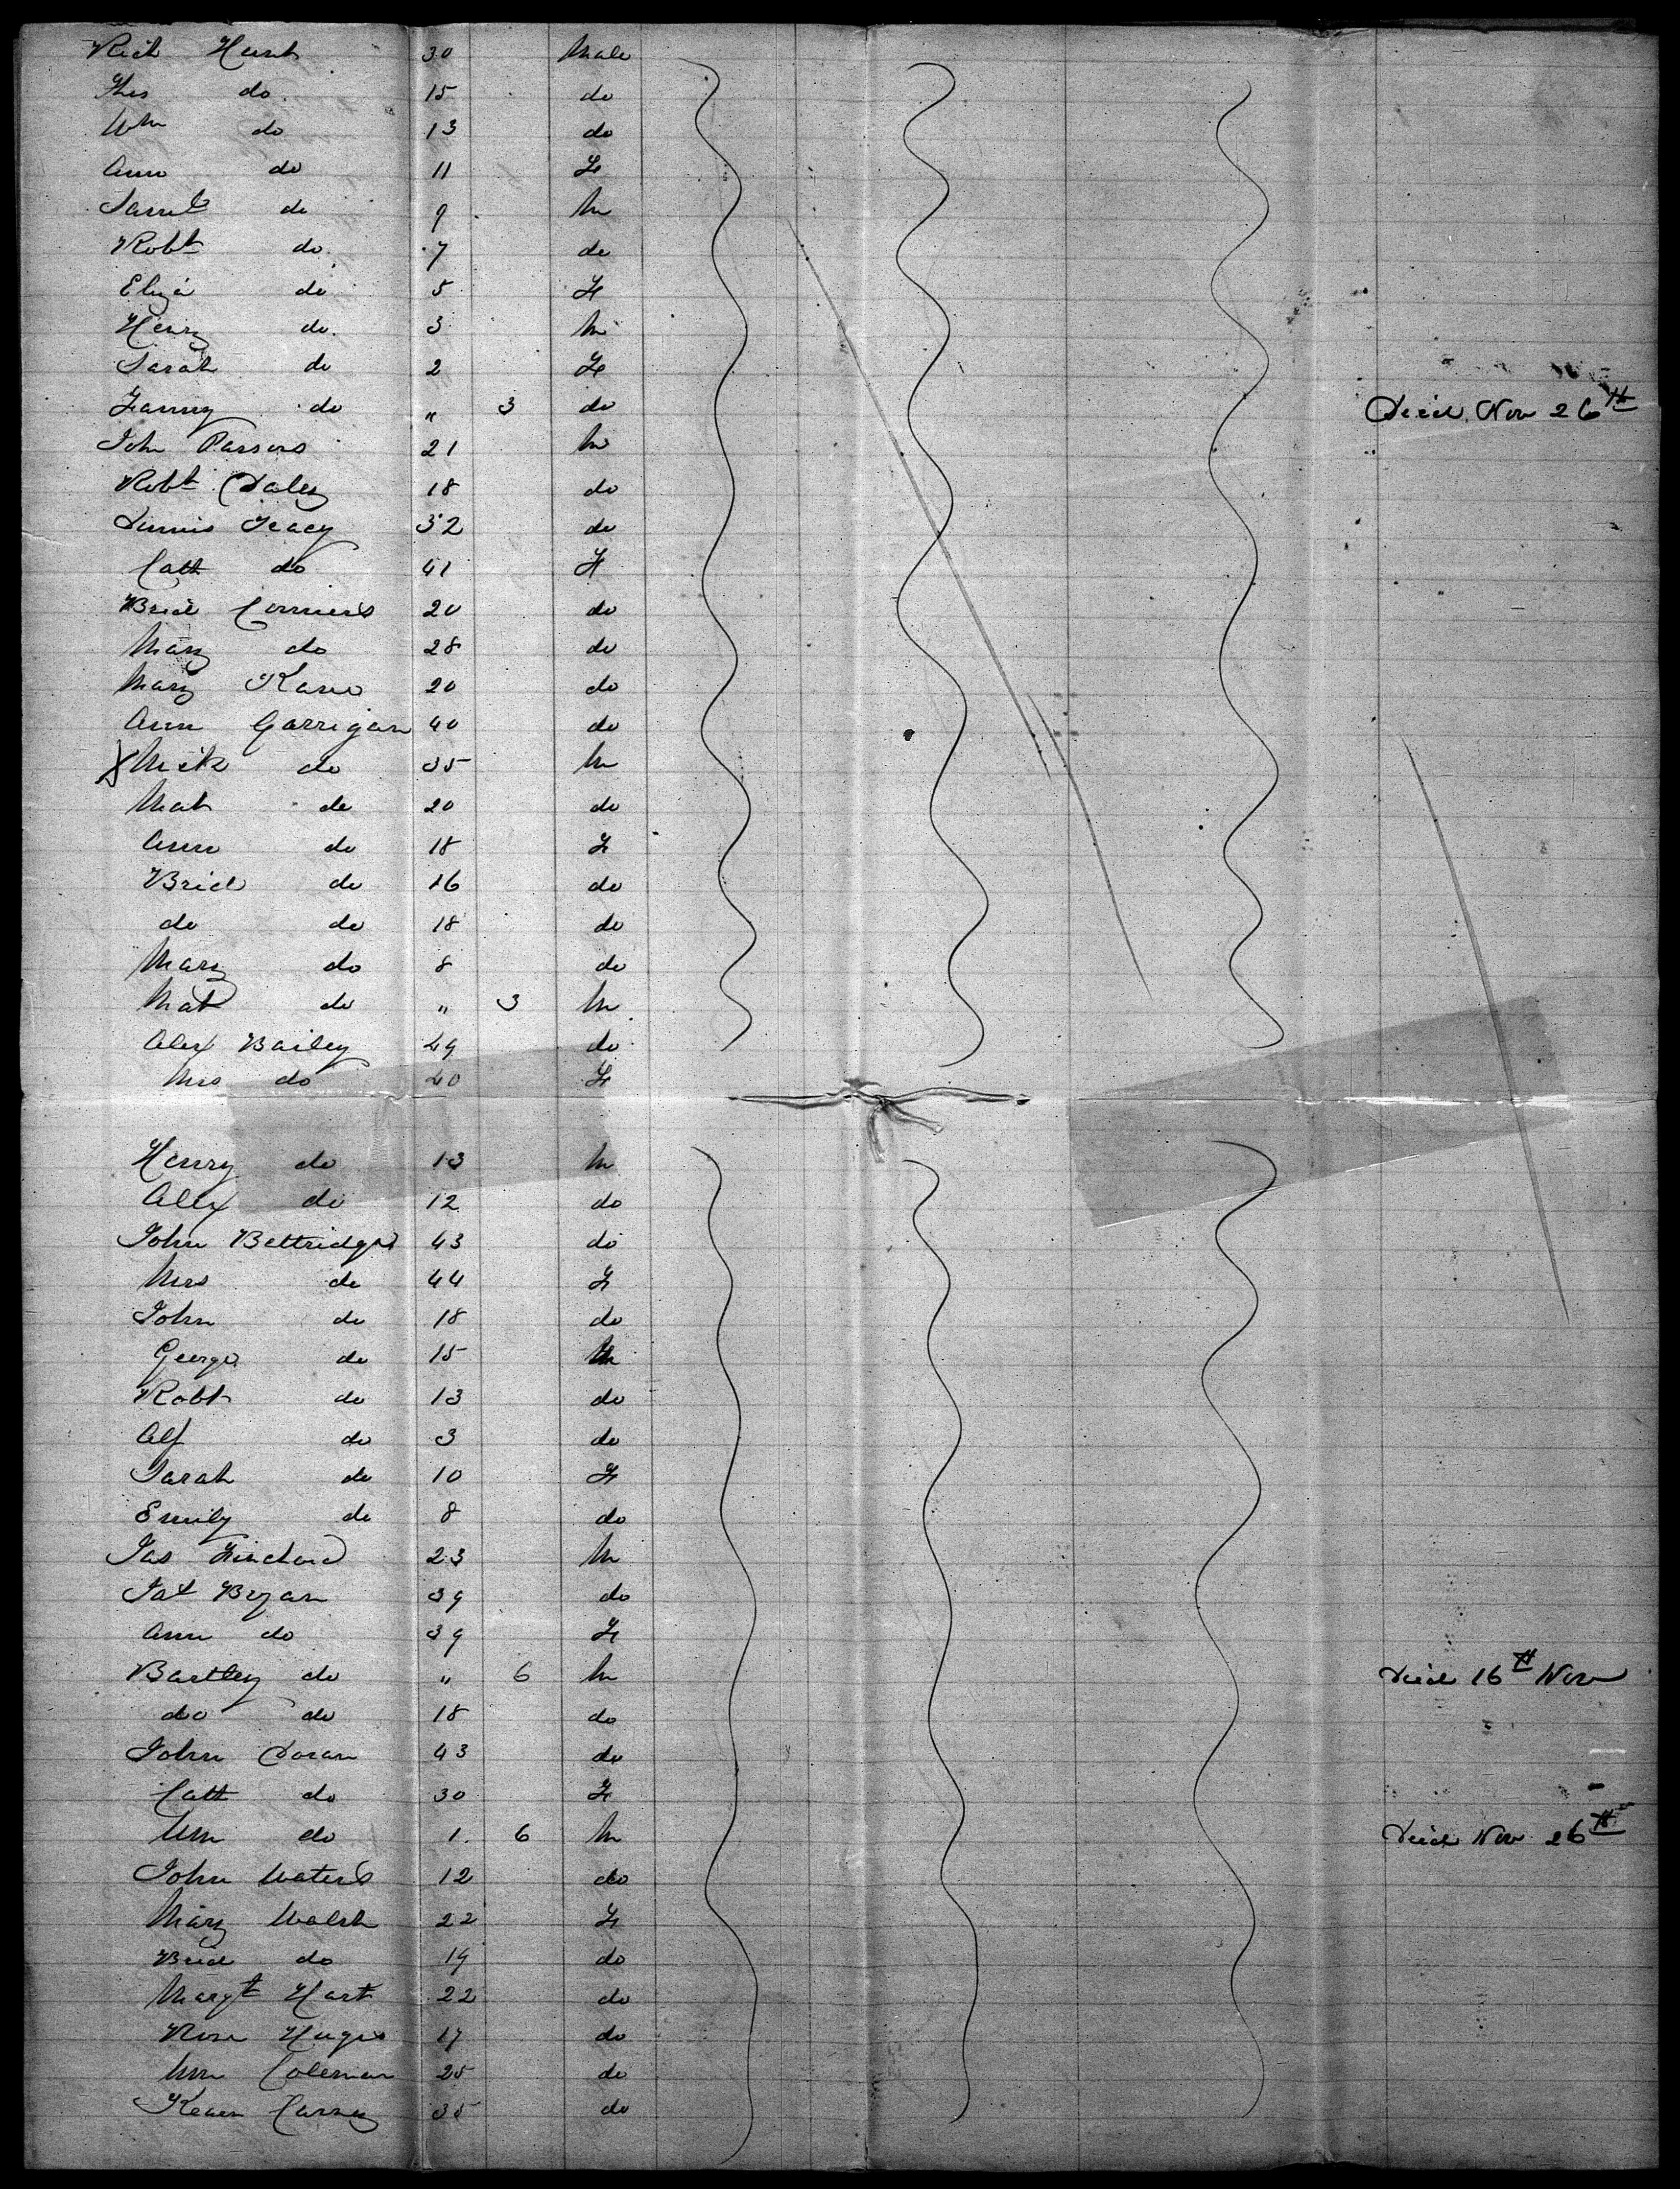 Rich Hunt 30 Male
Thos do 15 do
Wm do 13 do
Ann do 11 F
Saml do 9 M
Robt do 7 do
Eliza do 5 F
Henry do 3 M
Sarah do 2 F
Fanny do " 3 do Died Nov 26th
John Parsons 21 M
Robt Daley 18 do
Dennis Tracy 32 do
Cath do 41 F
Brid Conners 20 do
Mary do 28 do
Mary Kane 20 do
Ann Garrigan 40 do
X Mick do 35 M
Mat do 20 do
Ann do 18 F
Brid do 16 do
do do 18 do
Mary do 8 do
Mat do " 3 M
Alex Bailey 49 do
Mrs do 40 F
Henry do 13 M
Alex do 12 do
John Bettridge 43 do
Mrs do 44 F
John do 18 do
George do 15 M
Robt do 13 do
Alf do 3 do
Sarah do 10 F
Emily do 8 do
Jas 23 M
Pat Bryan 39 do
Ann do 39 F
Bartley do " 6 M Died 16th Nov
do do 18 do
John Doran 43 do
Cath do 30 F
Wm do 1 6 M Died Nov 26th
John Waters 12 do
Mary Walsh 22 F
Brid do 19 do
Margt Hart 22 do
Rose Huges 17 do
Wm Coleman 25 do
Carney 35 do